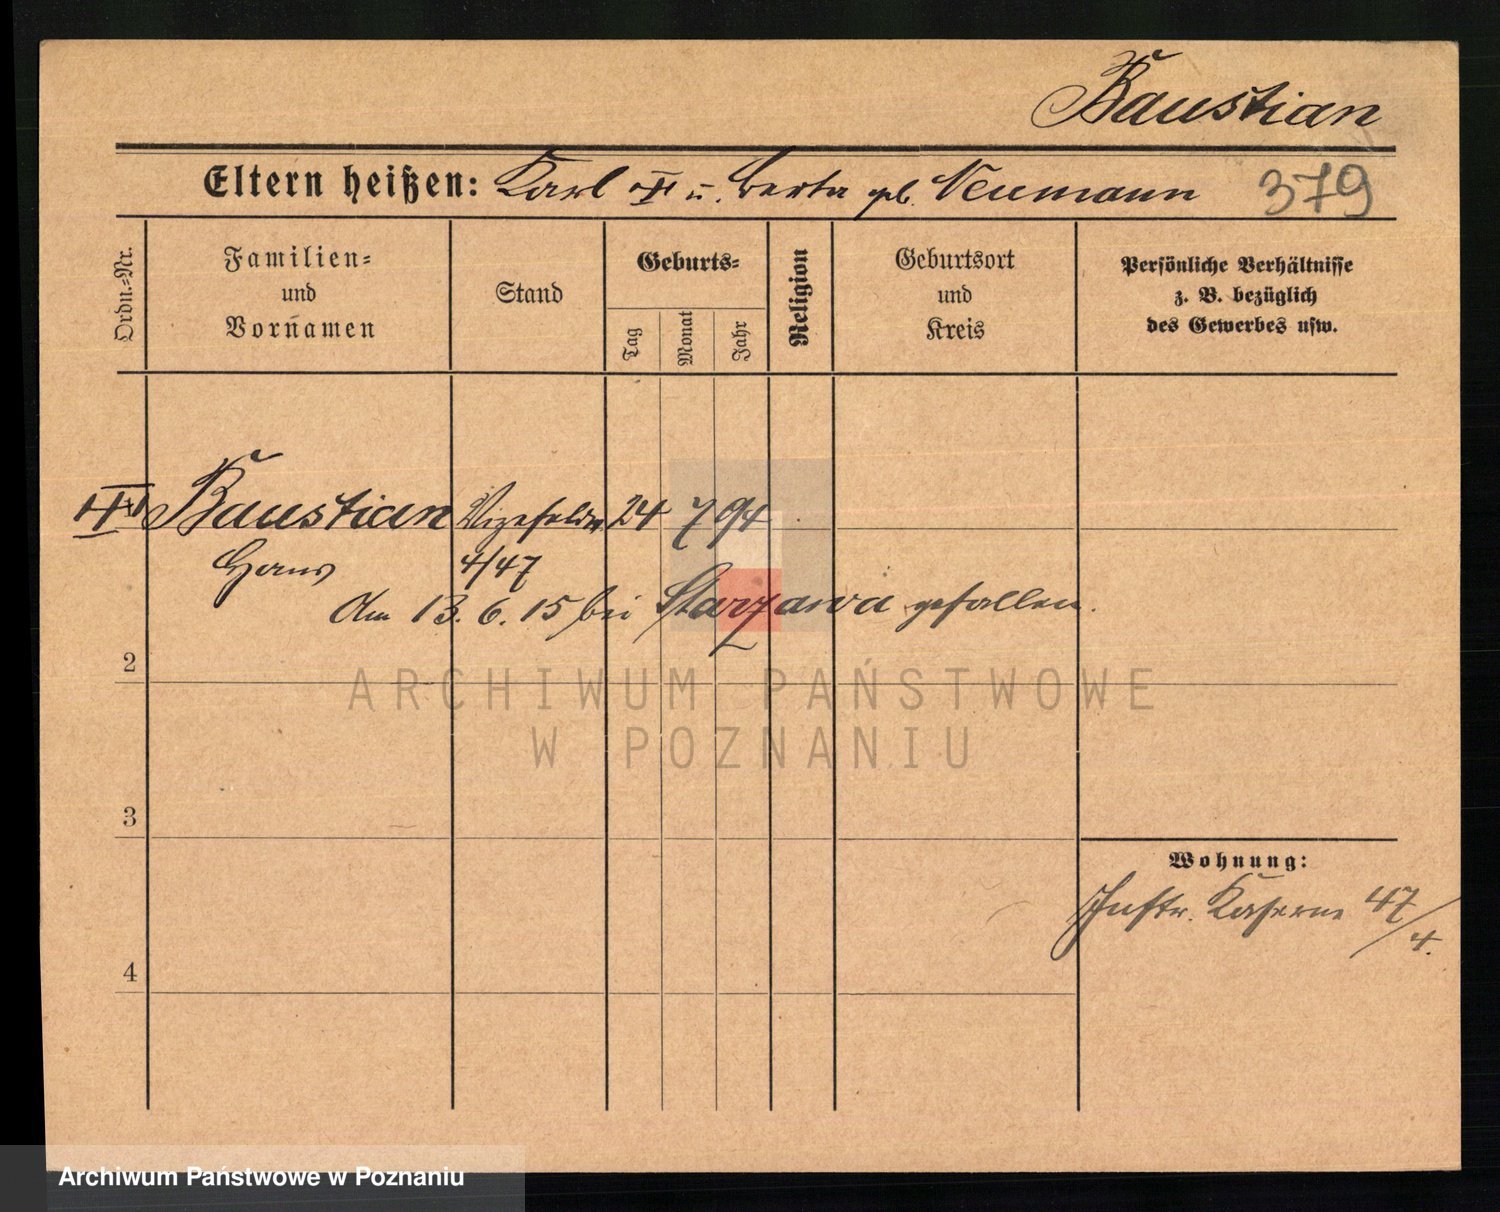 Baustian
Eltern heißen: Karl u. Berta geb. Neumann 379
Ordn.-Nr.
Familien-
und
Vornamen
Stand
Geburts-
Tag
Monat
Jahr
Religion
Geburtsort
und
Kreis
Persönliche Verhältnisse
z. B. bezüglich
des Gewerbes usw.
Baustian Vizefeldw. 24 7 94
Hans 4/47
Am 13. 6. 15 bei Starzawa gefallen.
2
ARCHIWUM PAŃSTWOWE
W POZNANIU
3
Wohnung:
Inftr. Kaserne 47/4.
4
Archiwum Państwowe w Poznaniu